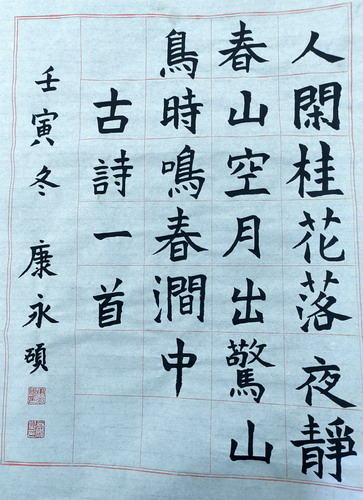 人閑桂花落夜靜
春山空月出驚山
鳥時鳴春澗中
古詩一首
壬寅冬 康永碩